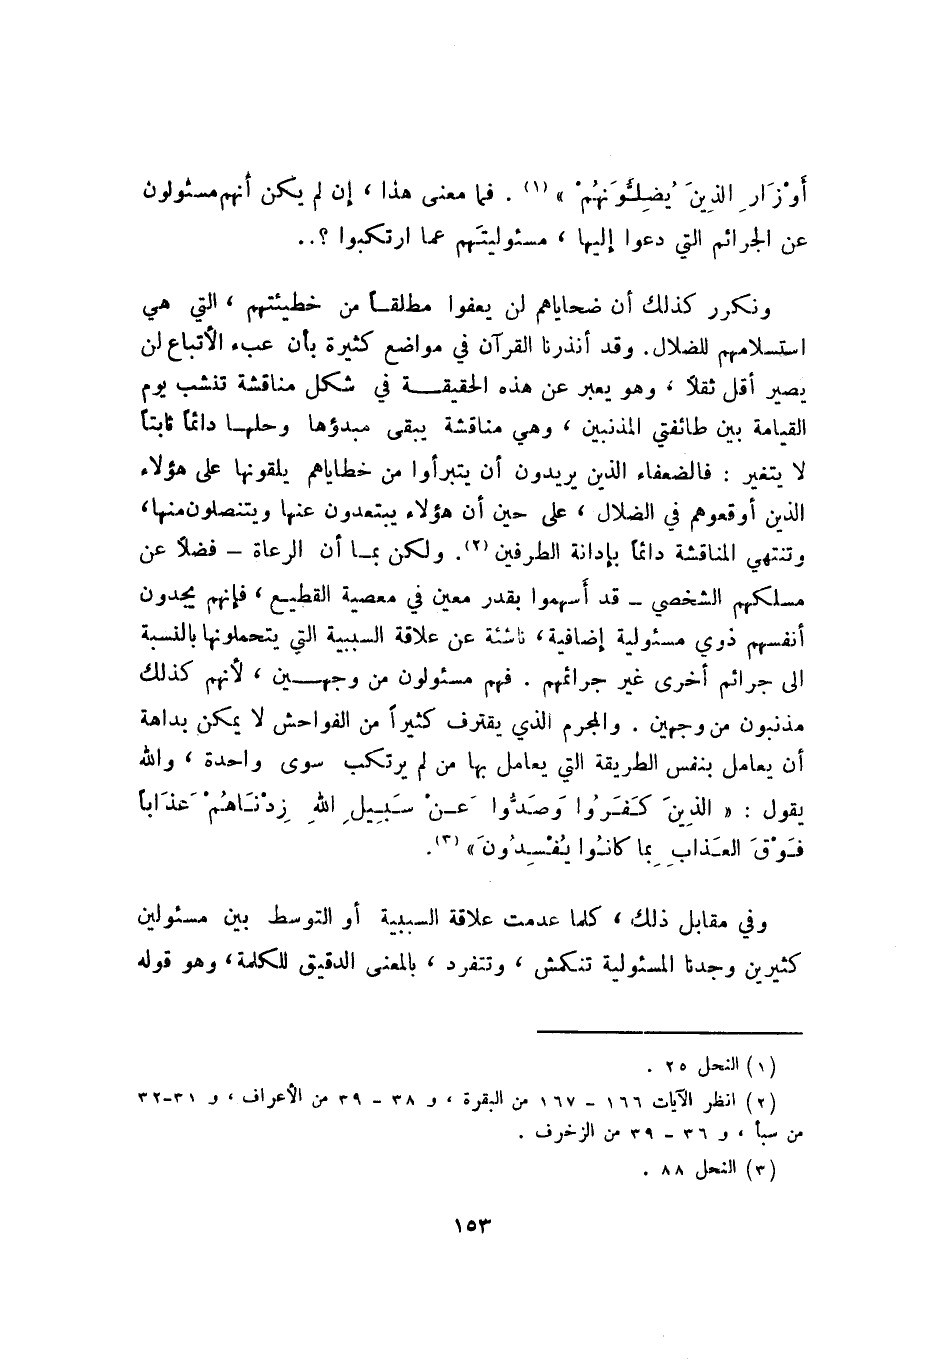 أَوْزَارِ الذِينَ يُضِلُّونَهُمْ » (١) . فما معنى هذا ، إن لم يكن أنهم مسئولون
عن الجرائم التي دعوا إليها ، مسئوليتَهم عما ارتكبوا ؟..
ونكرر كذلك أن ضحاياهم لن يعفوا مطلقـاً من خطيئتهم ، التي هي
استسلامهم للضلال. وقد أنذرنا القرآن في مواضع كثيرة بأن عبء الأتباع لن
يصير أقل ثقلاً ، وهو يعبر عن هذه الحقيقـــة في شكل مناقشة تنشب يوم
القيامة بين طائفتي المذنبين ، وهي مناقشة يبقى مبدؤها وحلهـا دائماً ثابتاً
لا يتغير : فالضعفاء الذين يريدون أن يتبرأوا من خطاياهم يلقونها على هؤلاء
الذين أوقعوهم في الضلال ، على حين أن هؤلاء يبتعدون عنها ويتنصلون منها،
وتنتهي المناقشة دائماً بإدانة الطرفين (٢). ولكن بمـا أن الرعاة – فضلاً عن
مسلكهم الشخصي – قد أسهموا بقدر معين في معصية القطيـع ، فإنهم يجدون
أنفسهم ذوي مسئولية إضافية، ناشئة عن علاقة السببية التي يتحملونها بالنسبة
الى جرائم أخرى غير جرائمهم . فهم مسئولون من وجهـــين ، لأنهم كذلك
مذنبون من وجهين . والمجرم الذي يقترف كثيراً من الفواحش لا يمكن بداهة
أن يعامل بنفس الطريقة التي يعامل بها من لم يرتكب سوى واحدة ، والله
يقول : « الذِينَ كَفَرُوا وَصَدُّوا عَـنْ سَبِيلِ اللهِ زِدْنَاهُمْ عَذَاباً
فَوْقَ العَذَابِ بِمَا كَانُوا يُفْسِدُونَ » (٣).
وفي مقابل ذلك ، كلما عدمت علاقة السببية أو التوسط بين مسئولين
كثيرين وجدنا المسئولية تنكمش ، وتتفرد ، بالمعنى الدقيق للكلمة، وهو قوله
(١) النحل ٢٥ .
(٢) انظر الآيات ١٦٦ – ١٦٧ من البقرة ، و ٣٨ – ٣٩ من الأعراف ، و ٣١–٣٢
من سبأ ، و ٣٦ – ٣٩ من الزخرف .
(٣) النحل ٨٨ .
١٥٣